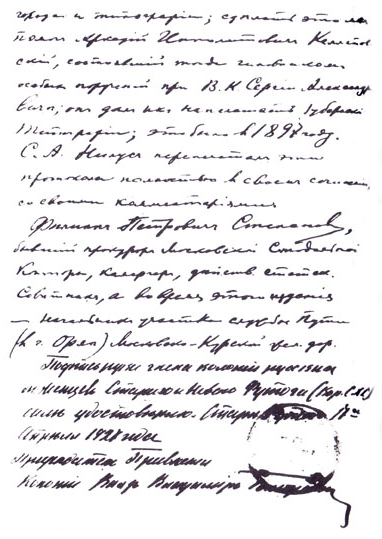 города и типографии; сделать это ... 
... Аркадий Ипполитович Келеповский, состоявший тогда чиновником
особых поручений при В. К. Сергии Александровиче; он дал их напечатать Губернской
Типографии; это было в 1897 году.
С. А. Нилус перепечатал эти
протоколы полностью в своем сочинении,
со своими комментариями
Филипп Петрович Степанов,
бывший прокурор Московской Синодальной
Конторы, камергер, действ. статск.
Советник, а во время этого издания
— начальник участка службы Пути
(в г. Орле) Московско-Курской жел. дор.
Подпись члена колонии русских
беженцев Стараго и Новаго Футога (Кор. С.Х.С)
сим удостоверяю. Стари Футог 17го
Апреля 1927 года
Председатель Правления
Колонии Князь Владимир